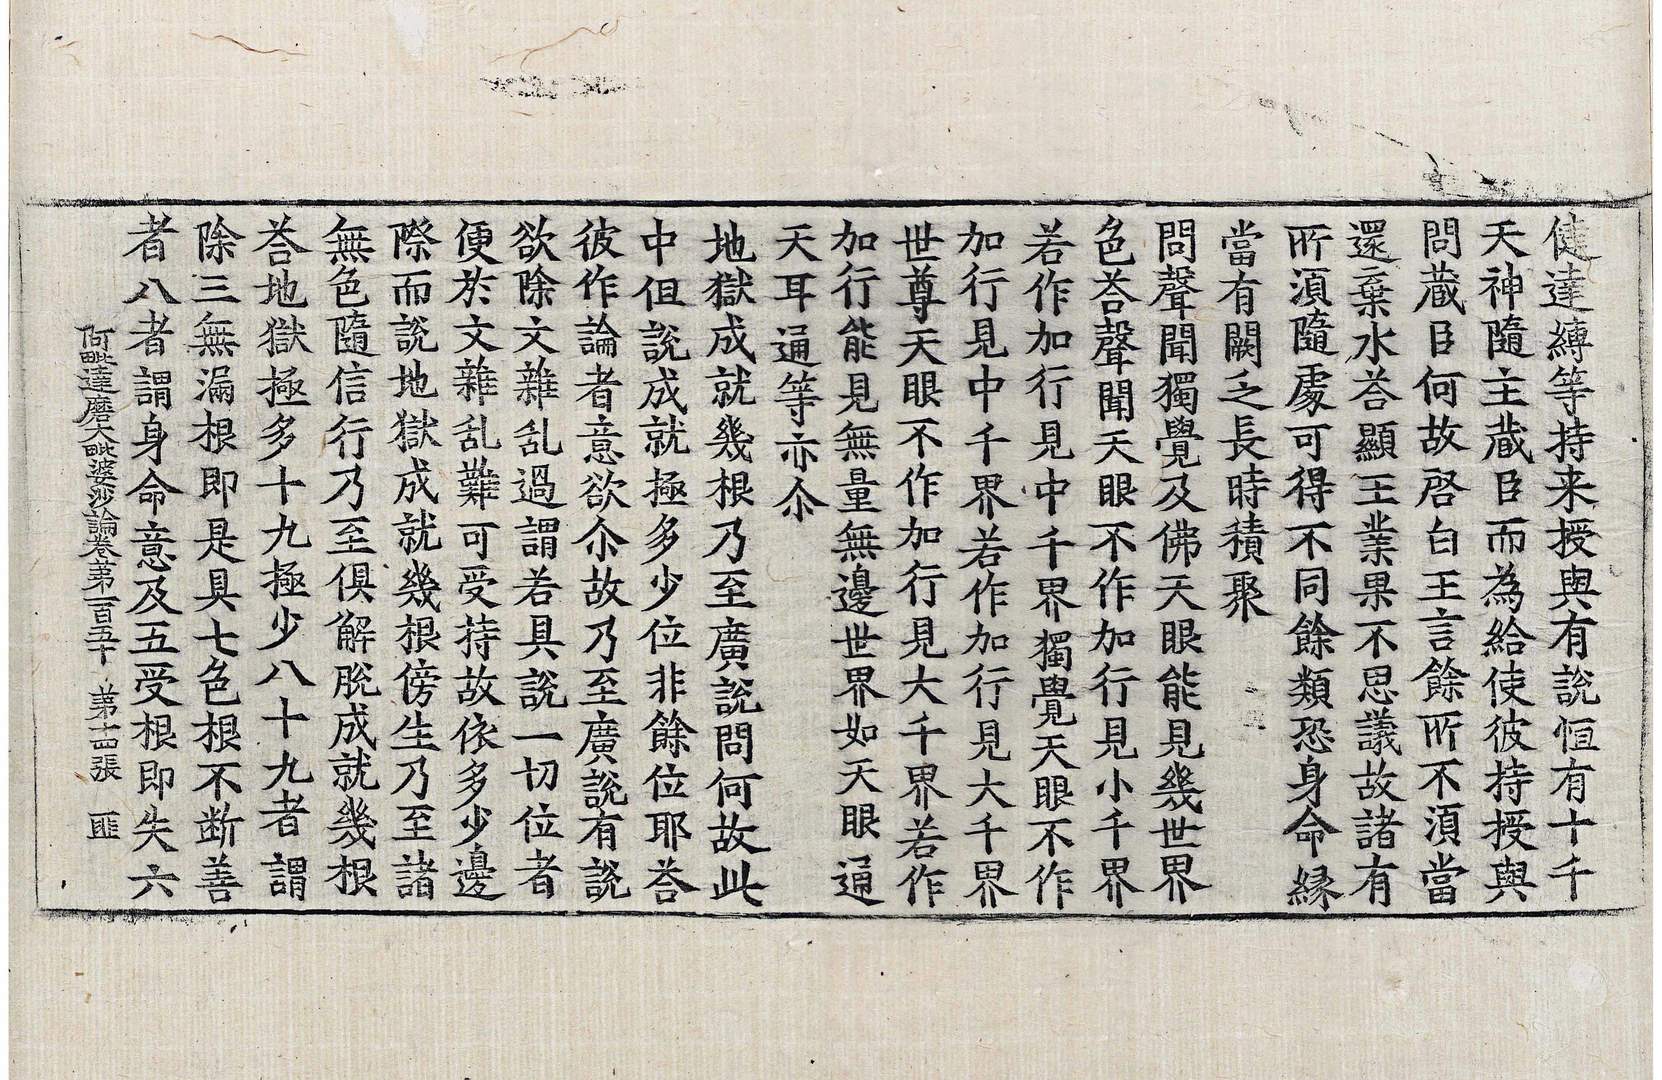 健達縛等持来授與有說恒有十千
天神隨主蔵臣而為給使彼持授與
問蔵臣何故啓白王言餘所不湏當
還棄水荅顯王業果不思議故諸有
所湏隨處可得不同餘類恐身命縁
當有闕乏長時積聚
問聲聞獨覺及佛天眼能見幾世界
色荅聲聞天眼不作加行見小千界
若作加行見中千界獨覺天眼不作
加行見中千界若作加行見大千界
世尊天眼不作加行見大千界若作
加行能見無量無邊世界如天眼通
天耳通等亦尒
地獄成就幾根乃至廣說問何故此
中但說成就極多少位非餘位耶荅
彼作論者意欲尒故乃至廣說有說
欲除文雜乱過謂若具說一切位者
便於文雜乱難可受持故依多少邊
際而說地獄成就幾根傍生乃至諸
無色隨信行乃至俱解脫成就幾根
荅地獄極多十九極少八十九者謂
除三無漏根即是具七色根不断善
者八者謂身命意及五受根即失六
阿毗達磨大毗婆沙論卷苐一百五十 苐十四張 匪